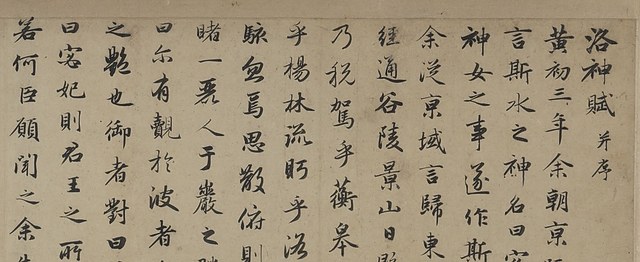 洛神賦 并序
黃初三年余朝京
言斯水之神名曰宓
神女之事遂作斯
余從京域言歸東
經通谷陵景山日
乃稅駕乎蘅皋
乎楊林流眄乎洛
駭忽焉思散俯則
睹一麗人于巖之
曰尓有覿於波者
之艷也御者對曰
曰宓妃則君王之所
若何臣願聞之余